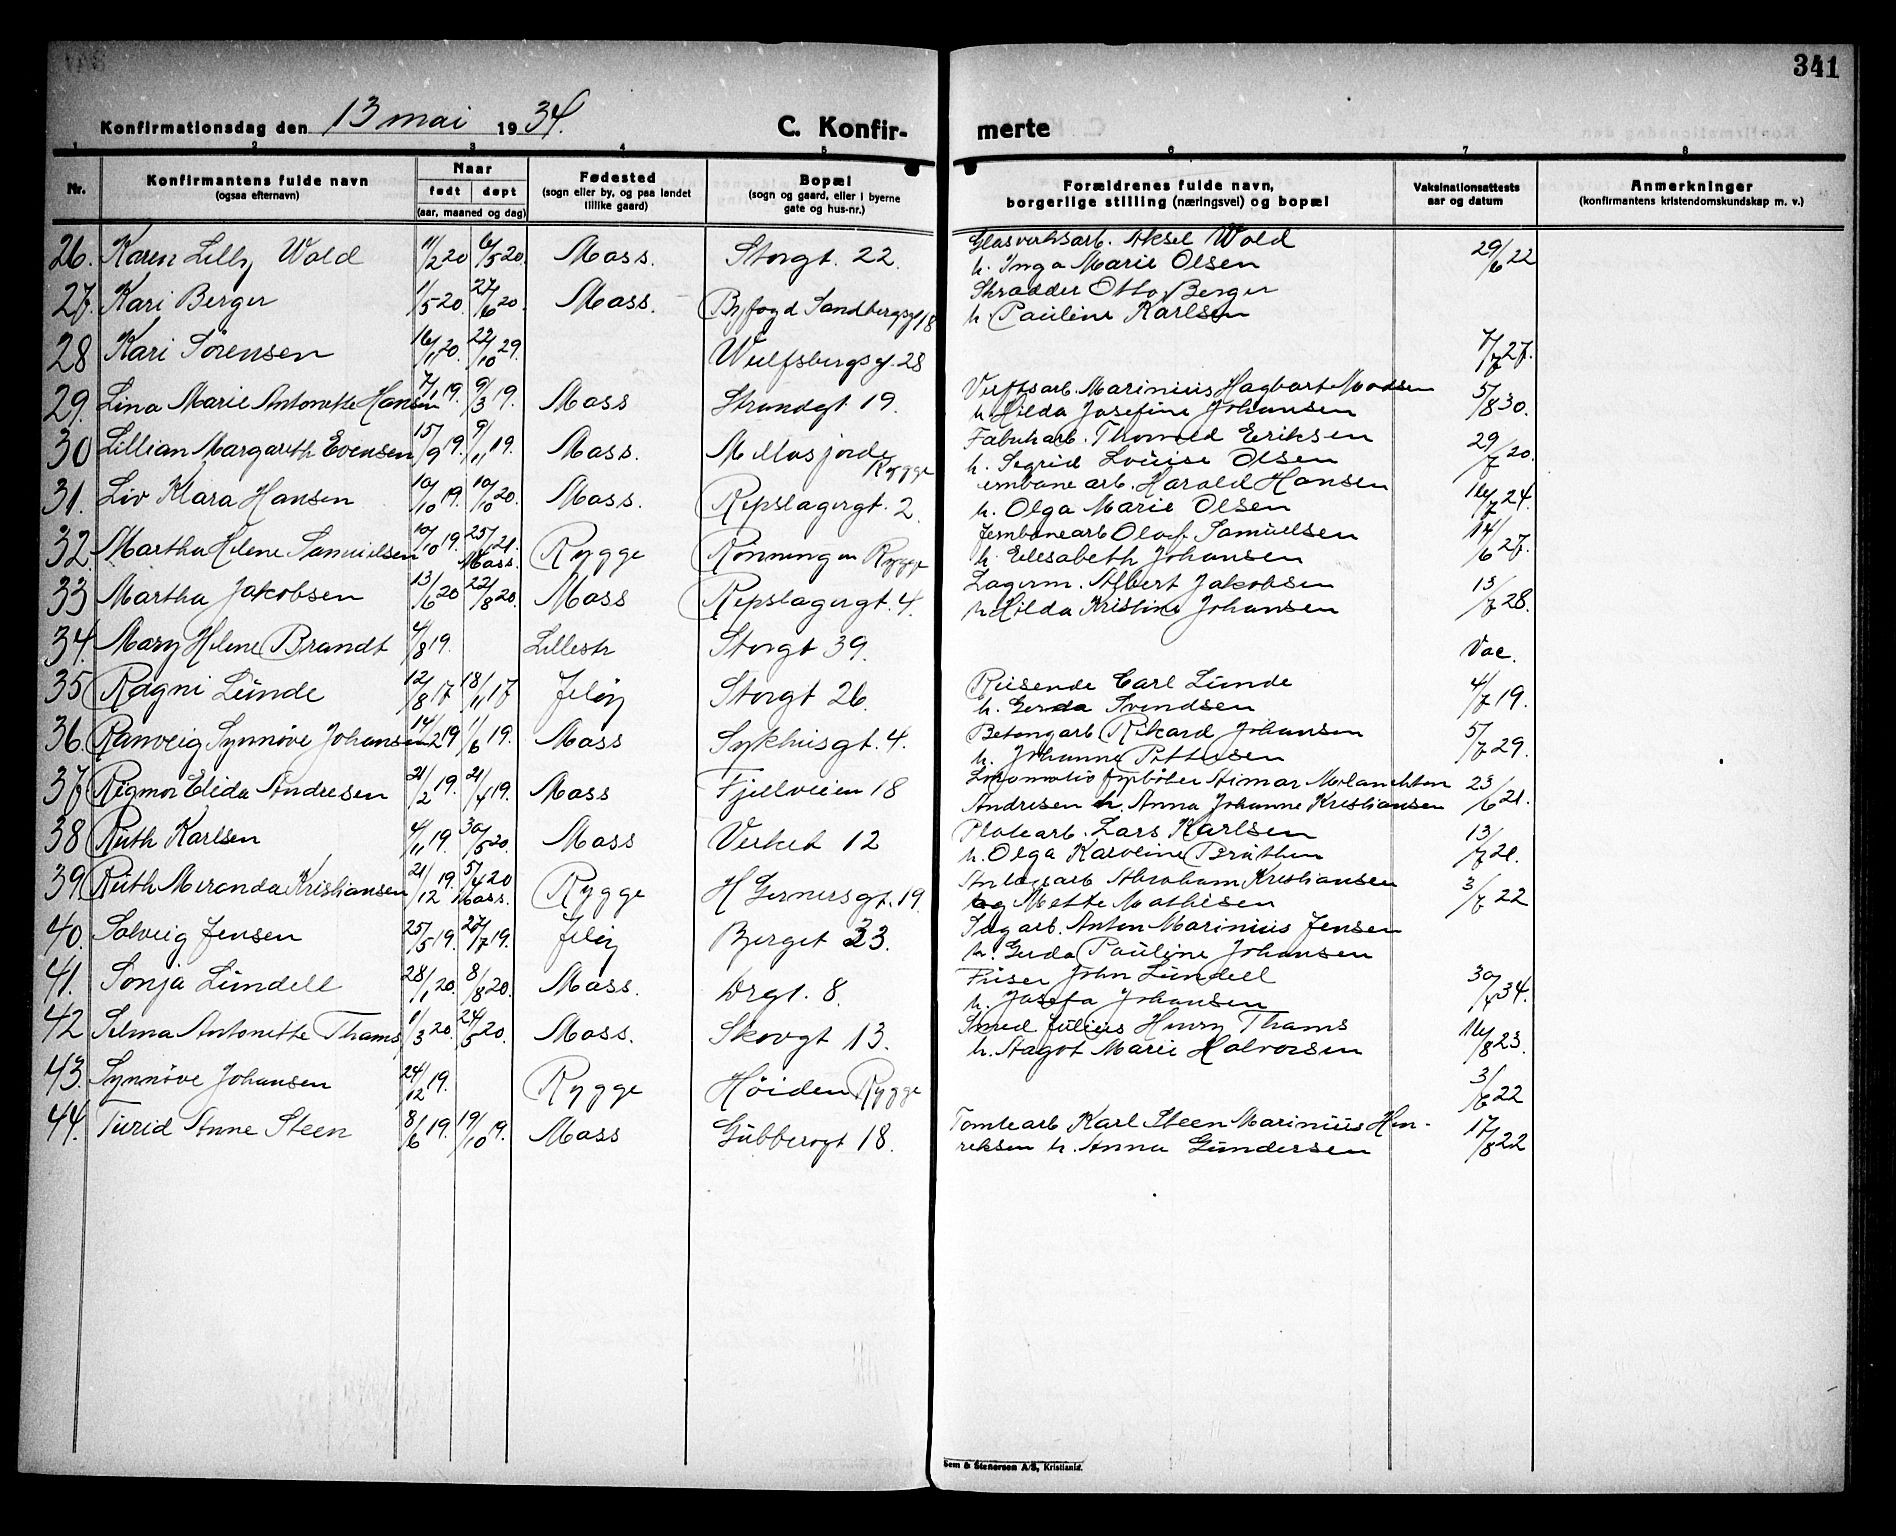 341
Konfirmationsdag den 13 mai 1934.
C. Konfir- merte
1 2 3 4 5 6 7 8
Nr.
Konfirmantens fulde navn
(ogsaa efternavn)
Naar
født døpt
(aar, maaned og dag)
Fødested
(sogn eller by, og paa landet
tillike gaard)
Bopæl
(sogn og gaard, eller i byerne
gate og hus-nr.)
Forældrenes fulde navn,
borgerlige stilling (næringsvei) og bopæl
Vaksinationsattests
aar og datum
Anmerkninger
(konfirmantens kristendomskundskap m. v.)
26. Karen Lilly Wold 11/2 20 6/5 20. Moss. Storgt. 22. Glasverksarb. Aksel Wold 29/6 22
h. Inga Marie Olsen
27. Kari Berger 1/5 20. 27/6 20 Moss. Byfogd Sandbergsgt 18 Skrædder Otto Berger
h. Pauline Karlsen
28 Kari Sörensen 16/1 20. 22/10 29. Wulfsbergsgt. 28 1/7 27.
29. Lina Marie Antonette Hansen 7/1 19. 9/3 19. Moss Strandgt. 19. Verftsarb. Marinius Hagbart Madsen 5/8 30.
h. Hilda Josefine Johansen
30 Lillian Margareth Evensen 15/9 19. 9/11 19. Moss. Mellosjorde Rygge Fabrikarb. Thorvald Eriksen 29/7 20.
h. Sigrid Louise Olsen
31. Liv Klara Hansen 10/10 19. 10/10 20. Moss. Repslagergt. 2 ernbane arb. Harald Hansen 16/7 24.
h. Olga Marie Olsen
32. Martha Helene Samuelsen 10/10 19. 25/7 21. Moss. Rygge Rönningen Rygge Jernbanearb Olaf Samuelsen 14/6 27.
h. Elisabeth Johansen
33 Martha Jakobsen 13/6 20 22/8 20. Moss Repslagergt. 4. Lagerm. Albert Jakobsen 13/7 28.
h. Hilda Kristine Johansen
34. Mary Helene Brandt 4/8 19. Lillestr Storgt 39. Vac.
35 Ragni Lunde 12/8 17 18/11 17 Jeløy Storgt 26. Reisende Carl Lunde 4/7 19.
h. Gerda Svendsen
36. Ranveig Synnöve Johansen 14/2 19 1/6 19. Moss Sykhusgt. 4. Betongarb Rikard Johansen 5/7 29.
h. Johanne Pettersen
37 Rigmor Elida Andresen 21/2 19. 21/4 19. Moss Fjellveien 18 Lokomotivfyrböter Melanchton 23/6 21.
Andresen h. Anna Johanne Kristiansen
38 Ruth Karlsen 4/11 19. 30/5 20. Moss Verket 12 Platearb. Lars Karlsen 13/7 21.
h. Olga Karoline Bråthen
39. Ruth Miranda Kristiansen 21/12 19. 5/4 20 Moss. Rygge H Gernersgt. 19. Anlægsarb Abraham Kristiansen 3/7 22
og Mette Mathisen
40. Solveig Jensen 25/5 19. 27/7 19. Jeløy Berget 33. Sagarb. Anton Marinius Jensen
h. Gerda Pauline Johansen
41. Sonja Lundell 28/1 20. 8/8 20. Moss. Drgt. 8. Friser John Lundell 30/4 34.
h. Josefa Johansen
42 Selma Antonette Thams 1/3 20. 24/5 20. Moss. Skovgt 13. Smed Julius Henry Thams 16/8 23.
h. Aagot Marie Halvorsen
43. Synnöve Johansen 24/12 19. Rygge Höiden Rygge 3/6 22
44. Turid Anne Steen 8/6 19. 19/10 19. Moss Gubberogt 18. Tomtearb Karl Steen Marinius Hen- 17/8 22
reksen h. Anna Gundersen
Sem & Stenersen A/S, Kristiania.